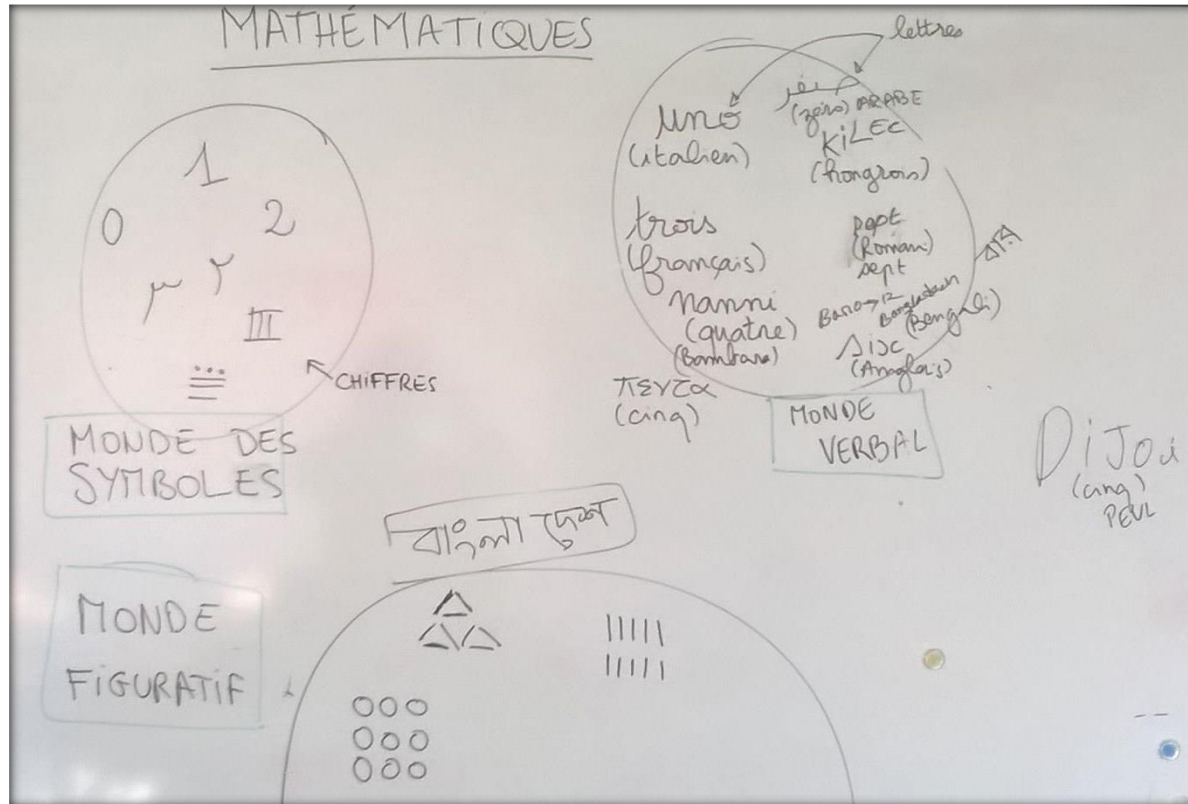 MATHÉMATIQUES
1
0
2
٣ ٢
III
CHIFFRES
MONDE DES
SYMBOLES
lettres
uno
(italien)
صفر
(zéro) ARABE
KiLEC
(hongrois)
trois
(français)
nanni
(quatre)
(Bambara)
(Romani)
sept
Bangladesh
(Bengali)
(Anglais)
πεντα
(cinq)
MONDE
VERBAL
DiJoi
(cinq)
PEUL
বাংলা দেশ
MONDE
FiGURATiF